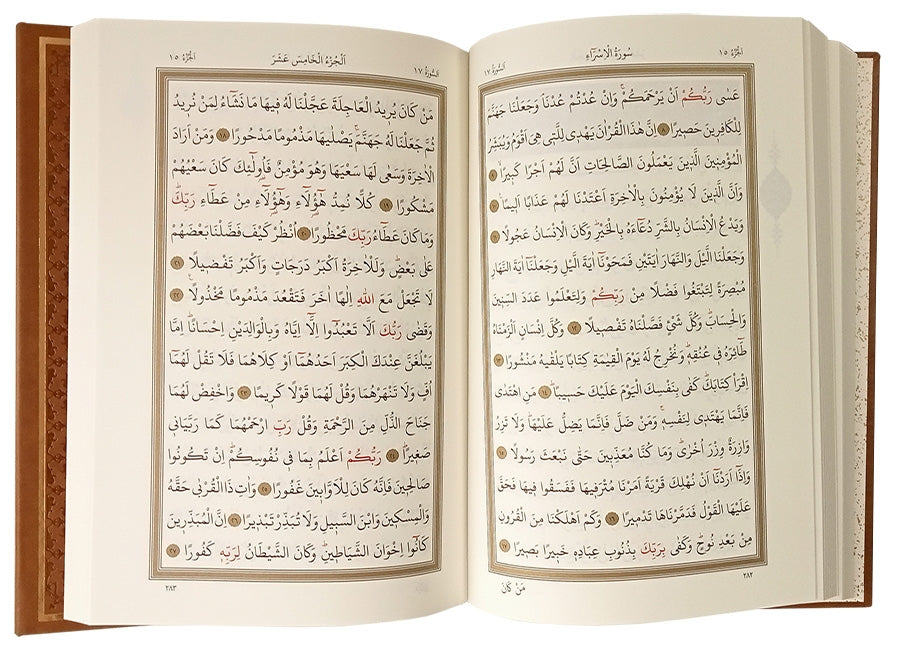 الجزء ١٥
سُورَةُ الْاِسْرَاءِ
السورة ١٧
عَسٰى رَبُّكُمْ اَنْ يَرْحَمَكُمْۚ وَاِنْ عُدْتُمْ عُدْنَاۢ وَجَعَلْنَا جَهَنَّمَ
لِلْكَافِرٖينَ حَصٖيرًا ٨ اِنَّ هٰذَا الْقُرْاٰنَ يَهْدٖى لِلَّتٖى هِىَ اَقْوَمُ وَيُبَشِّرُ
الْمُؤْمِنٖينَ الَّذٖينَ يَعْمَلُونَ الصَّالِحَاتِ اَنَّ لَهُمْ اَجْرًا كَبٖيرًا ٩
وَاَنَّ الَّذٖينَ لَا يُؤْمِنُونَ بِالْاٰخِرَةِ اَعْتَدْنَا لَهُمْ عَذَابًا اَلٖيمًا ١٠
وَيَدْعُ الْاِنْسَانُ بِالشَّرِّ دُعَٓاءَهُ بِالْخَيْرِؕ وَكَانَ الْاِنْسَانُ عَجُولًا ١١
وَجَعَلْنَا الَّيْلَ وَالنَّهَارَ اٰيَتَيْنِ فَمَحَوْنَٓا اٰيَةَ الَّيْلِ وَجَعَلْنَٓا اٰيَةَ النَّهَارِ
مُبْصِرَةً لِتَبْتَغُوا فَضْلًا مِنْ رَبِّكُمْ وَلِتَعْلَمُوا عَدَدَ السِّنٖينَ
وَالْحِسَابَؕ وَكُلَّ شَیْءٍ فَصَّلْنَاهُ تَفْصٖيلًا ١٢ وَكُلَّ اِنْسَانٍ اَلْزَمْنَاهُ
طَٓائِرَهُ فٖى عُنُقِهٖؕ وَنُخْرِجُ لَهُ يَوْمَ الْقِيٰمَةِ كِتَابًا يَلْقٰيهُ مَنْشُورًا ١٣
اِقْرَأْ كِتَابَكَؕ كَفٰى بِنَفْسِكَ الْيَوْمَ عَلَيْكَ حَسٖيبًاؕ ١٤ مَنِ اهْتَدٰى
فَاِنَّمَا يَهْتَدٖى لِنَفْسِهٖۚ وَمَنْ ضَلَّ فَاِنَّمَا يَضِلُّ عَلَيْهَاؕ وَلَا تَزِرُ
وَازِرَةٌ وِزْرَ اُخْرٰىؕ وَمَا كُنَّا مُعَذِّبٖينَ حَتّٰى نَبْعَثَ رَسُولًا ١٥
وَاِذَٓا اَرَدْنَٓا اَنْ نُهْلِكَ قَرْيَةً اَمَرْنَا مُتْرَفٖيهَا فَفَسَقُوا فٖيهَا فَحَقَّ
عَلَيْهَا الْقَوْلُ فَدَمَّرْنَاهَا تَدْمٖيرًا ١٦ وَكَمْ اَهْلَكْنَا مِنَ الْقُرُونِ
مِنْ بَعْدِ نُوحٍؕ وَكَفٰى بِرَبِّكَ بِذُنُوبِ عِبَادِهٖ خَبٖيرًا بَصٖيرًا ١٧
٢٨٢
مَنْ كَانَ
السورة ١٧
اَلْجُزْءُ الْخَامِسَ عَشَرَ
الجزء ١٥
مَنْ كَانَ يُرٖيدُ الْعَاجِلَةَ عَجَّلْنَا لَهُ فٖيهَا مَا نَشَٓاءُ لِمَنْ نُرٖيدُ
ثُمَّ جَعَلْنَا لَهُ جَهَنَّمَۚ يَصْلٰيهَا مَذْمُومًا مَدْحُورًا ١٨ وَمَنْ اَرَادَ
الْاٰخِرَةَ وَسَعٰى لَهَا سَعْيَهَا وَهُوَ مُؤْمِنٌ فَاُولٰٓئِكَ كَانَ سَعْيُهُمْ
مَشْكُورًا ١٩ كُلًّا نُمِدُّ هٰٓؤُلَٓاءِ وَهٰٓؤُلَٓاءِ مِنْ عَطَٓاءِ رَبِّكَؕ
وَمَا كَانَ عَطَٓاءُ رَبِّكَ مَحْظُورًا ٢٠ اُنْظُرْ كَيْفَ فَضَّلْنَا بَعْضَهُمْ
عَلٰى بَعْضٍؕ وَلَلْاٰخِرَةُ اَكْبَرُ دَرَجَاتٍ وَاَكْبَرُ تَفْضٖيلًا ٢١
لَا تَجْعَلْ مَعَ اللّٰهِ اِلٰهًا اٰخَرَ فَتَقْعُدَ مَذْمُومًا مَخْذُولًاۚ ٢٢
وَقَضٰى رَبُّكَ اَلَّا تَعْبُدُٓوا اِلَّٓا اِيَّاهُ وَبِالْوَالِدَيْنِ اِحْسَانًاؕ اِمَّا
يَبْلُغَنَّ عِنْدَكَ الْكِبَرَ اَحَدُهُمَٓا اَوْ كِلَاهُمَا فَلَا تَقُلْ لَهُمَٓا
اُفٍّ وَلَا تَنْهَرْهُمَا وَقُلْ لَهُمَا قَوْلًا كَرٖيمًا ٢٣ وَاخْفِضْ لَهُمَا
جَنَاحَ الذُّلِّ مِنَ الرَّحْمَةِ وَقُلْ رَبِّ ارْحَمْهُمَا كَمَا رَبَّيَانٖى
صَغٖيرًاؕ ٢٤ رَبُّكُمْ اَعْلَمُ بِمَا فٖى نُفُوسِكُمْؕ اِنْ تَكُونُوا
صَالِحٖينَ فَاِنَّهُ كَانَ لِلْاَوَّابٖينَ غَفُورًا ٢٥ وَاٰتِ ذَا الْقُرْبٰى حَقَّهُ
وَالْمِسْكٖينَ وَابْنَ السَّبٖيلِ وَلَا تُبَذِّرْ تَبْذٖيرًا ٢٦ اِنَّ الْمُبَذِّرٖينَ
كَانُٓوا اِخْوَانَ الشَّيَاطٖينِؕ وَكَانَ الشَّيْطَانُ لِرَبِّهٖ كَفُورًا ٢٧
٢٨٣